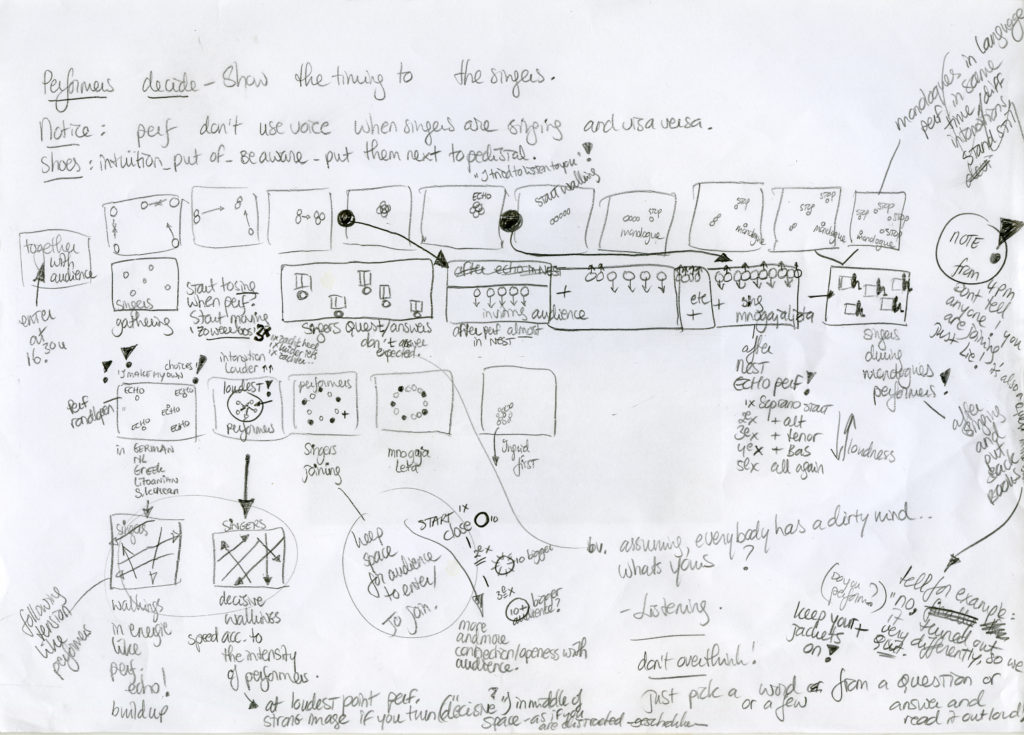 Performers decide - Show the timing to the singers.
Notice: perf don't use voice when singers are singing and visa versa.
Shoes: intuition_put of_ Be aware - put them next to pedistal.
"I tried to listen to you"!
start walling
monologues in language
perf in same
time / diff
intonations
stand still
together
with
audience
enter
at
16.30u
ECHO
stop
monologue
stop
stop
monologue
stop
stop
monologue
stop
stop
stop
stop
monologue
NOTE
from
singers
gathering
start to sing
when perf.
start moving
Singers Quest/answers
don't answer
expected.
after echo in NEST
inviting audience
after perf almost
in NEST
+
etc
+
+
sing
mnogaja lieta
after
NEST
ECHO perf!
1x Soprano start
2x + alt
3x + tenor
4x + Bas
5x all again
loudness
singers
during
monologues
performers!
after
singing
and
put
back
4 pin
wont tell
anyone! you
are joining.
Just lie!
! choices!
"I MAKE MY OWN
perf
ECHO
ECHO
ECHO
ECHO
in GERMAN
NL
Greek
Litoanian
intonation
louder ↑↑
loudest!
performers
performers
+
Singers
joining
mnogaja
leta
Ingrid
first
singers
walkings
in energie
like
perf.
echo!
build up
following
tension
like
performers
SINGERS
decisive
walkings
speed acc. to
the intensity
of performers.
at loudest point perf.
strong image if you turn (decisive?) in middle of
space - as if you
are distracted
keep
space
for audience
to enter/
to join.
START 1x
close
10
2x
10 bigger
3x
10+
bigger
audience?
more
and more
connection/openess with
audience.
bv. assuming, everybody has a dirty mind...
whats yours?
- Listening.
don't overthink!
just pick a word or from a question or
or a few
answer and
read it out loud!
(do you
perform?)
keep your
jackets
on!
tell for example:
"no,
it turned out
very differently, so we
quit.